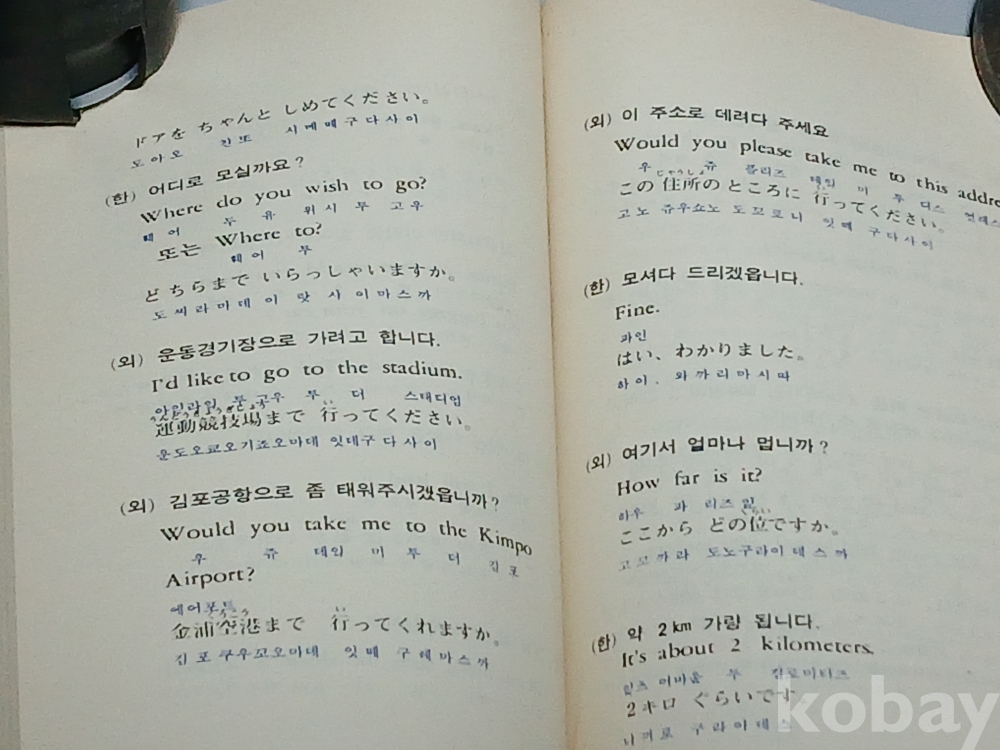 ドアを ちゃんと しめてください。
도아오 쟌또 시메떼구다사이
(한) 어디로 모실까요?
Where do you wish to go?
훼어 두 유 위시 투 고우
또는 Where to?
훼어 투
どちらまで いらっしゃいますか。
도찌라마데 이랏샤이마스까
(외) 운동경기장으로 가려고 합니다.
I'd like to go to the stadium.
투 고우 투 더 스태디엄
運動競技場まで 行ってください。
운도오교오기죠오마대 잇데구다사이
(외) 김포공항으로 좀 태워주시겠읍니까?
Would you take me to the Kimpo
우 쥬 테익 미 투 더 김포
Airport?
에어포트
金浦空港まで 行ってくれますか。
김포구우꼬오마대 잇떼 구레마스까
(외) 이 주소로 데려다 주세요
Would you please take me to this addre
우 쥬 플리즈 테익 미 투 디스
じゅうしょ
この 住所の ところに 行ってください。
고노 쥬우쇼노 도꼬로니 잇떼 구다사이
(한) 모셔다 드리겠읍니다.
Fine.
파인
はい、わかりました。
하이. 와까리마시따
(외) 여기서 얼마나 멉니까?
How far is it?
하우 파 리즈 잍
ここから どの位ですか。
고꼬까라 도노구라이데스까
(한) 약 2km 가량 됩니다.
It's about 2 kilometers.
잍츠 어바웉 투 킬로미터즈
2キロ ぐらいです
니끼로 구라이데스
kobay